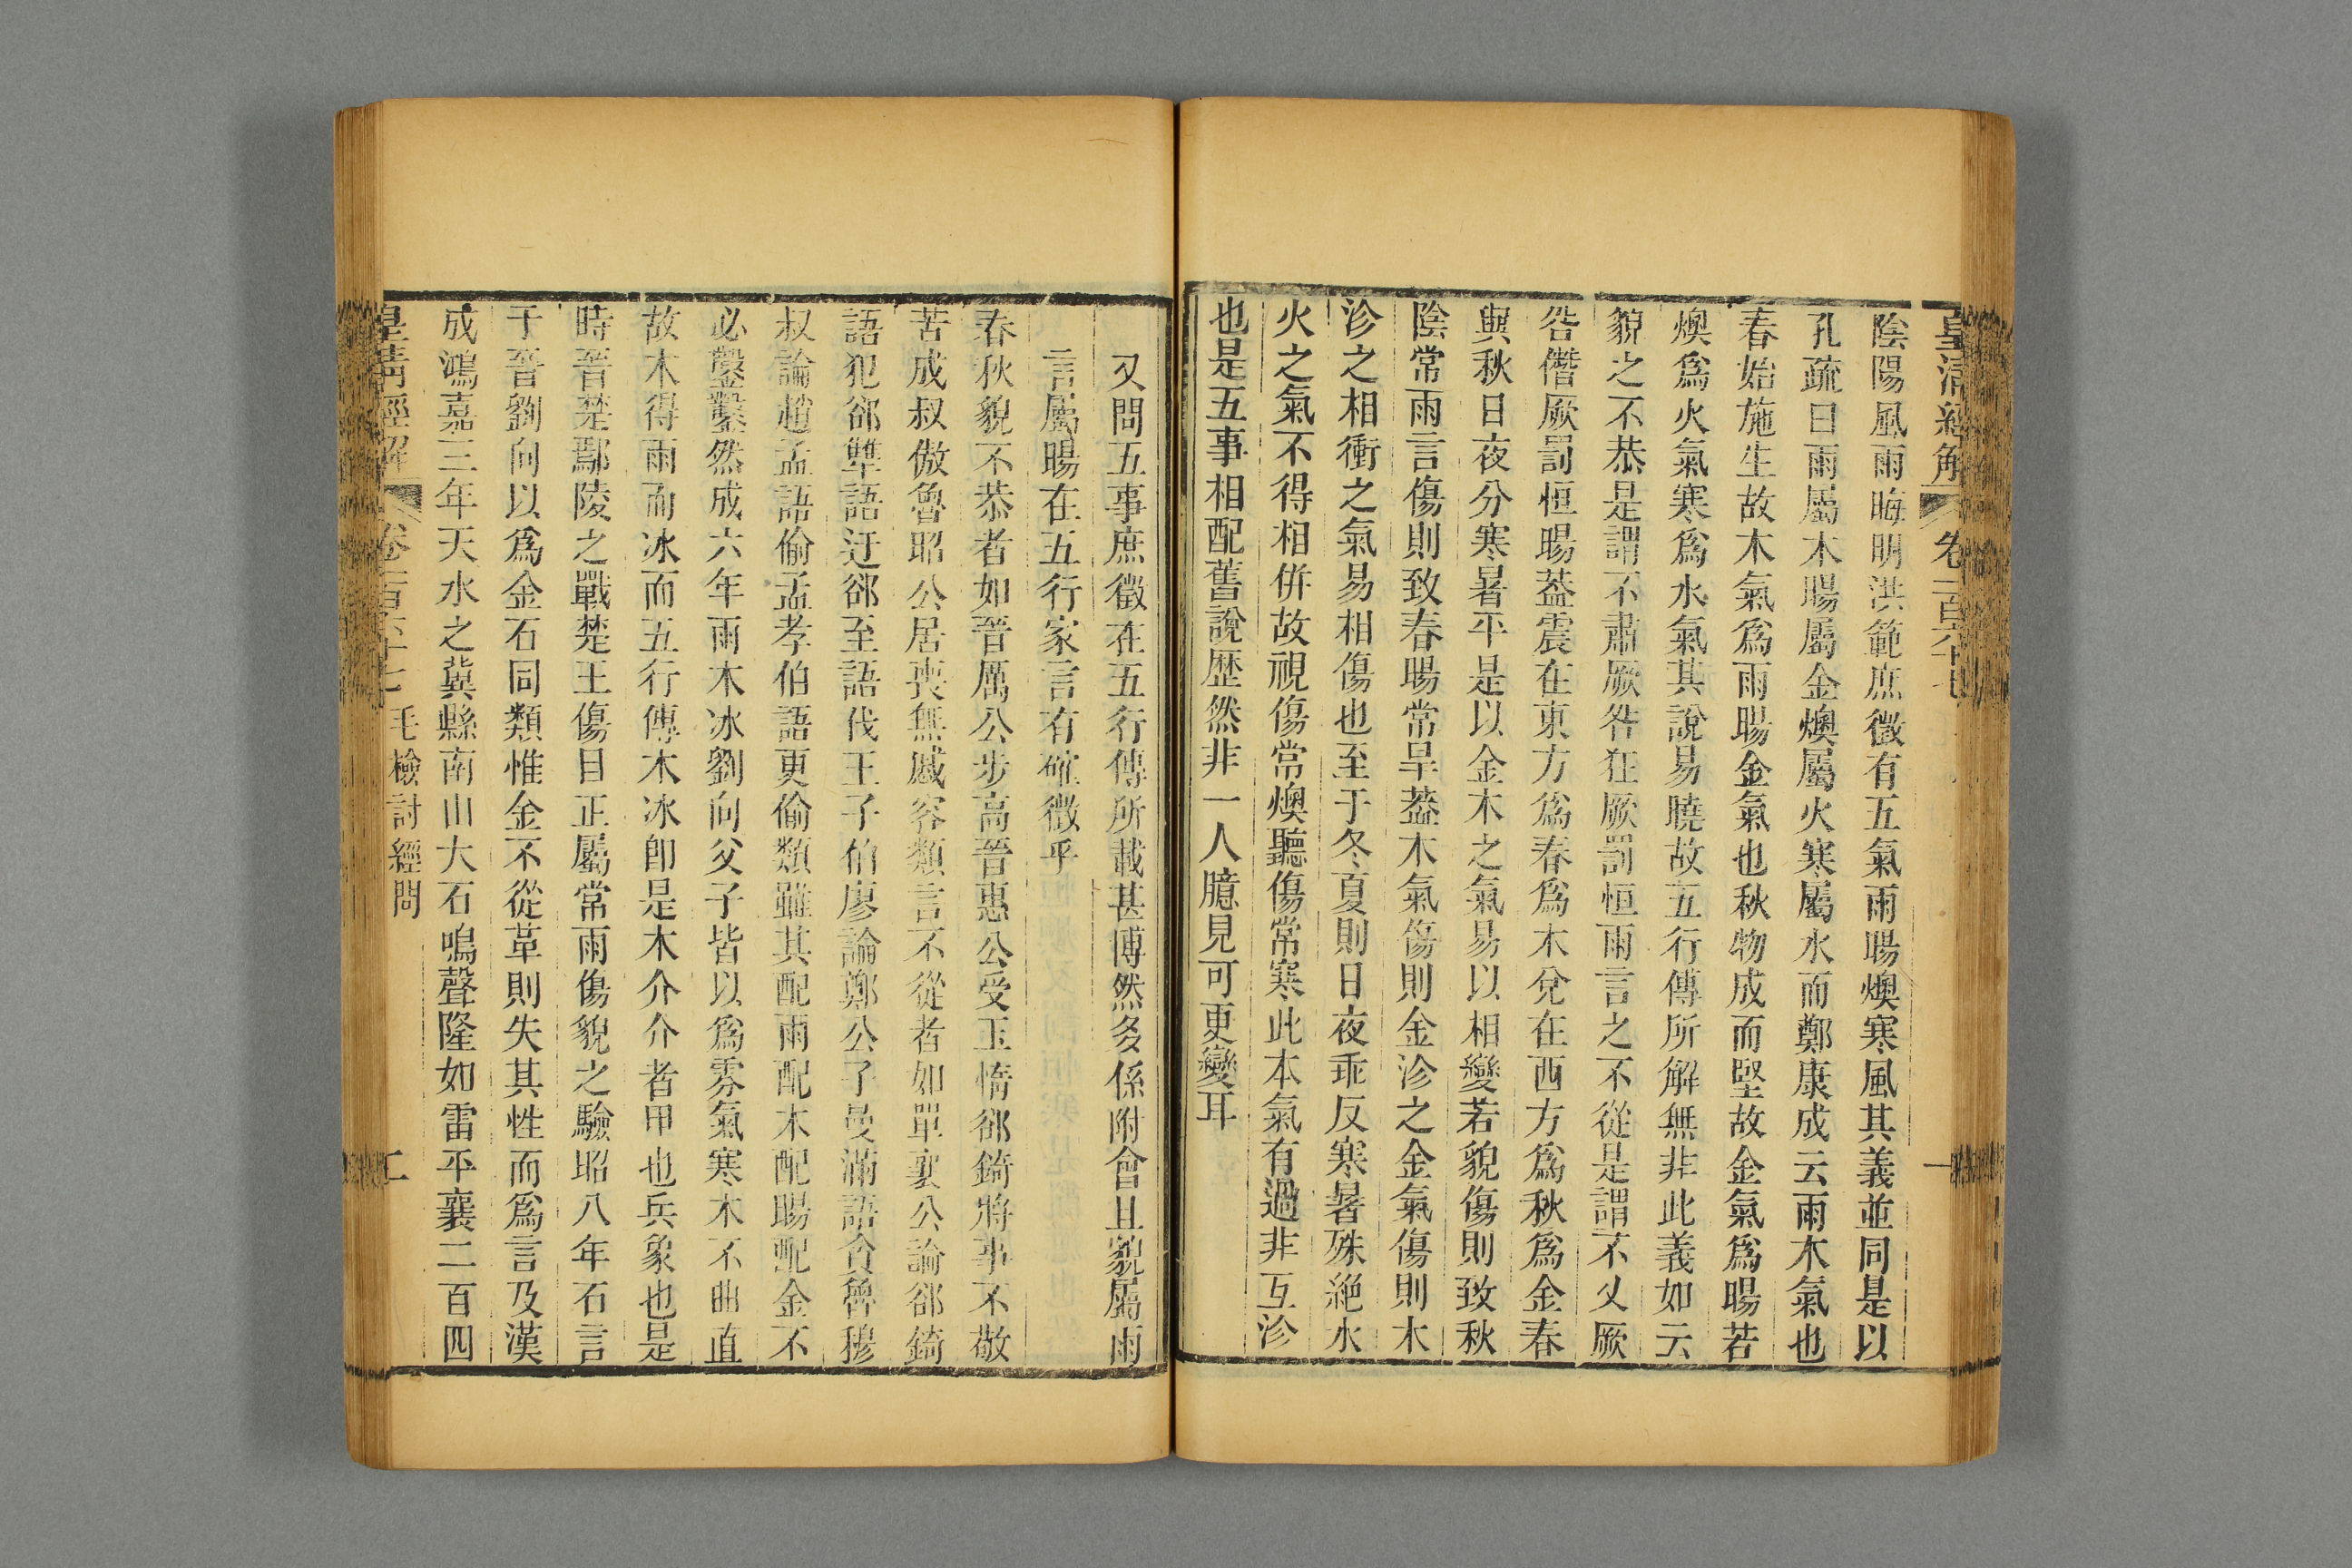 皇清經解
卷一百六十七
一
陰陽風雨晦明洪範庶徵有五氣雨暘燠寒風其義並同是以
孔疏曰雨屬木暘屬金燠屬火寒屬水而鄭康成云雨木氣也
春始施生故木氣爲雨暘金氣也秋物成而堅故金氣爲暘若
燠爲火氣寒爲水氣其說易曉故五行傳所解無非此義如云
貌之不恭是謂不肅厥咎狂厥罰恒雨言之不從是謂不乂厥
咎僭厥罰恒暘葢震在東方爲春爲木兌在西方爲秋爲金春
與秋日夜分寒暑平是以金木之氣易以相變若貌傷則致秋
陰常雨言傷則致春暘常旱葢木氣傷則金沴之金氣傷則木
沴之相衝之氣易相傷也至于冬夏則日夜乖反寒暑殊絕水
火之氣不得相併故視傷常燠聽傷常寒此本氣有過非互沴
也是五事相配舊說歷然非一人臆見可更變耳
又問五事庶徵在五行傳所載甚博然多係附會且貌屬雨
言屬暘在五行家言有確徵乎
春秋貌不恭者如晉厲公步高晉惠公受玉惰郤錡將事不敬
苦成叔傲魯昭公居喪無慼容類言不從者如單襄公論郤錡
語犯郤犨語迂郤至語伐王子伯廖論鄭公子曼滿語貪魯穆
叔論趙孟語偷孟孝伯語更偷類雖其配雨配木配暘配金不
必鑿鑿然成六年雨木冰劉向父子皆以爲雰氣寒木不曲直
故木得雨而冰而五行傳木冰卽是木介介者甲也兵象也是
時晉楚鄢陵之戰楚王傷目正屬常雨傷貌之驗昭八年石言
于晉劉向以爲金石同類惟金不從革則失其性而爲言及漢
成鴻嘉三年天水之冀縣南山大石鳴聲隆如雷平襄二百四
皇淸經解
卷一百六十七
毛檢討經問
二